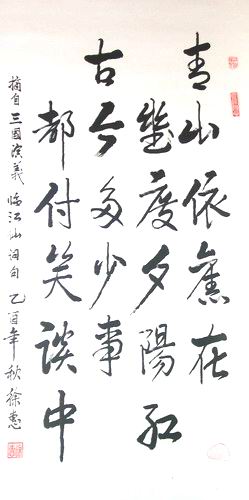 青山依舊在
幾度夕陽紅
古今多少事
都付笑談中
摘自三國演義臨江仙詞句乙酉年秋徐惠